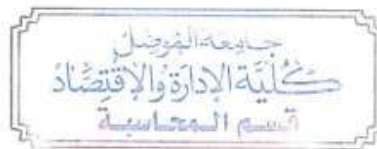 جامعة الموصل
كليَّة الإدارة والإقتصاد
قسم المحاسبة